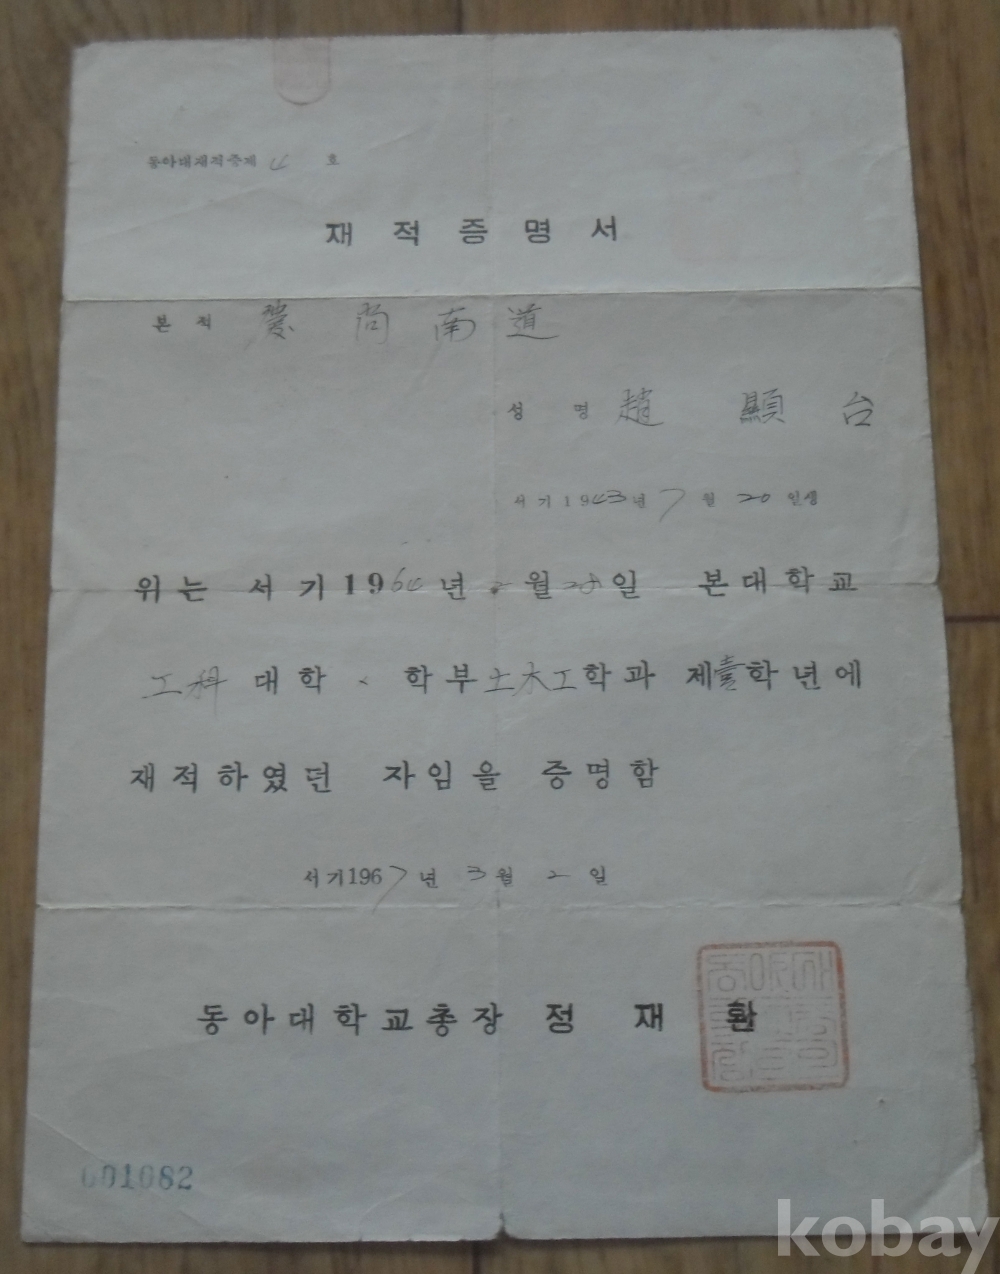 동아대재적증제 4 호
재적증명서
본적 慶尚南道
성명 趙顯台
서기1943년 7월 20일생
위는 서기1964년 2월 28일 본대학교
工科대학 학부土木工학과 제壹학년에
재적하였던 자임을 증명함
서기1967년 3월 2일
동아대학교총장 정재환
001082
kobay